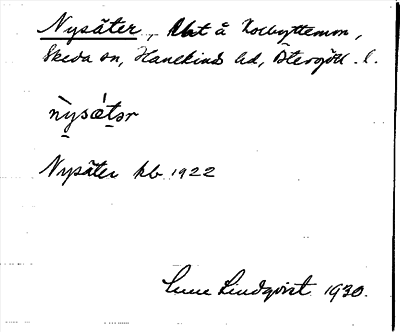 Nysäter, Aht å Kolbyttemon,
Skeda sn, Hanekinds hd, Östergötl. l.
nỳsǽtər
Nysäter kb. 1922
Sune Lindqvist. 1930.